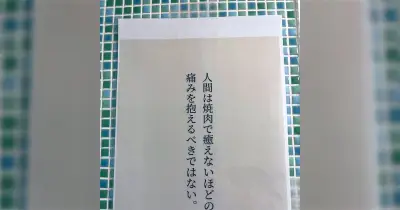 人間は焼肉で癒えないほどの
痛みを抱えるべきではない。